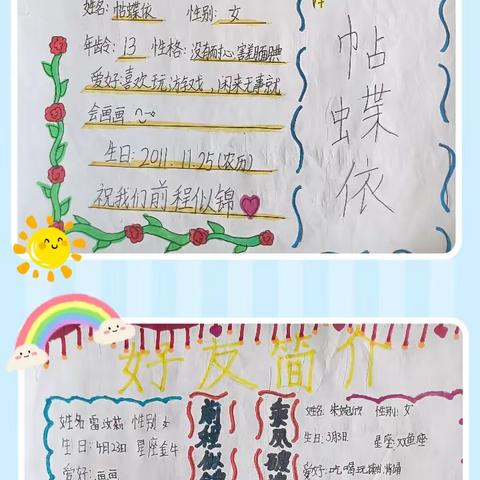 姓名:帖蝶依 性别:女
年龄:13 性格:没有耐心害羞腼腆
爱好:喜欢玩游戏,闲来无事就
会画画
生日:2011.11.25(农历)
祝我们前程似锦
帖蝶依
好友简介
姓名 性别 女
生日:4月23日 星座金牛
爱好:画画
前程似锦
乘风破浪
姓名: 性别:女
生日:3月3日 星座:双鱼座
爱好:吃喝玩